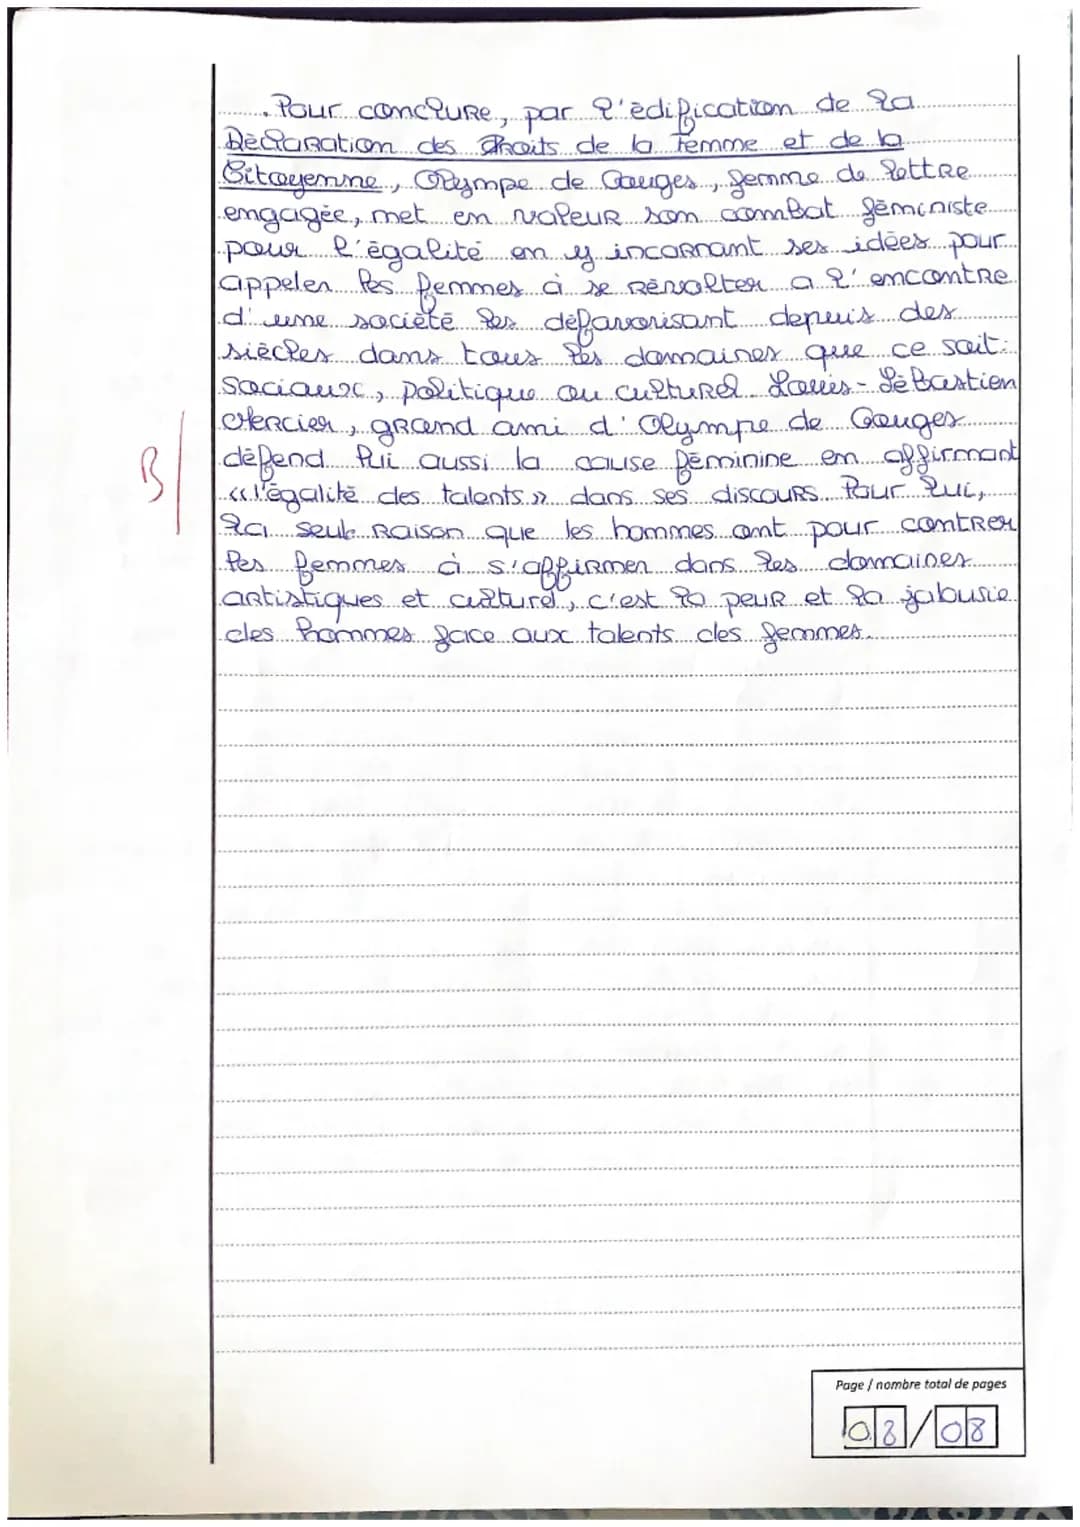 Pour conclure, par l'édification de la
Déclaration des Droits de la Femme et de la
Citoyenne, Olympe de Gouges, femme de lettre
engagée, met en valeur son combat féministe
pour l'égalité en y incarnant ses idées pour
appeler les femmes à se révolter a l'encontre
d'une société les défavorisant depuis des
siècles dans tous les domaines que ce soit:
sociaux, politique ou culturel. Louis-Sébastien
Mercier, grand ami d'Olympe de Gouges
défend lui aussi la cause féminine en affirmant
B/
«l'égalité des talents» dans ses discours. Pour lui,
la seule raison que les hommes ont pour contrer
les femmes à s'affirmer dans les domaines
artistiques et culturel, c'est la peur et la jalousie
des hommes face aux talents des femmes.
Page / nombre total de pages
08/08